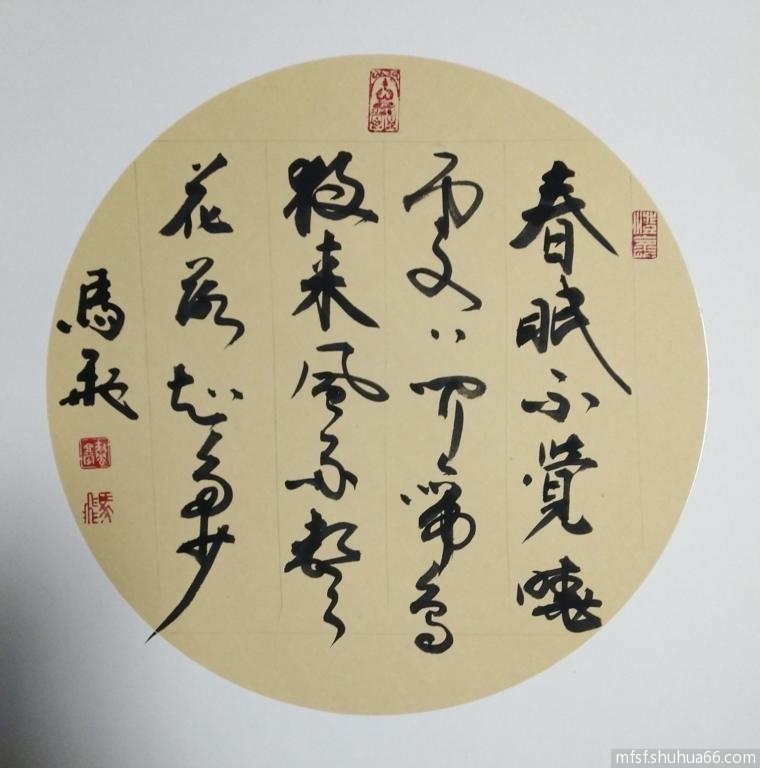 春眠不覺曉
處々聞啼鳥
夜来風雨聲
花落知多少
馬飛
mfsf.shuhua66.com